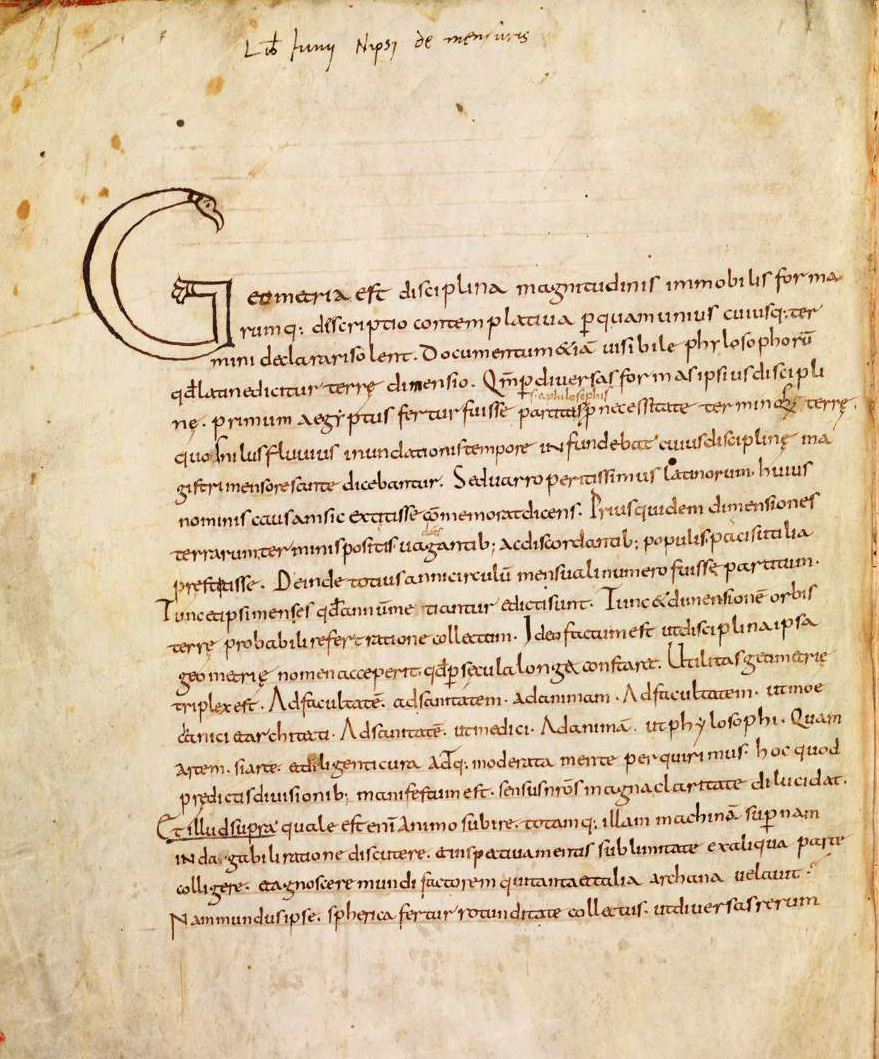 Lib Junij Nipsi de mensuris
Geometria est disciplina magnitudinis immobilis forma
rumq; descriptio contemplativa p quam unius cuiusq; ter
mini declarari solent. Documentum &iā visibile phylosophorū
qđ latine dicitur terrę dimensio. Qm p diversas formas ipsius discipli
a philosophis
nę. primum aegyptus fertur fuisse partitus p necessitate terminoꝝ terrę.
quos nilus fluvius inundationis tempore infundebat cuius disciplinę ma
gistri mensores ante dicebantur. Sed varro peritissimus latinorum. huius
nominis causam sic extitisse cōmemorat dicens. Prius quidem dimensiones
terrarum terminis positis vagantib; ac discordantib; populis pacis utilia
prestitisse. Deinde totius anni circulū mensuali numero fuisse partitum.
Tunc et ipsi menses qđ annūme tiantur edicti sunt. Tunc & dimensionē orbis
terrę probabili refert ratione collectam. Ideo factum est ut disciplina ipsa
geometrię nomen acceperit. qđ p secula longa constaret. Utilitas geometrię
triplex est. Ad facultatē. ad sanitatem. ad animam. Ad facultatem. ut moe
chanici et architecti. Ad sanitatē. ut medici. Ad animā. ut phylosophi. Quam
artem. si arte. et diligenti cura atq; moderata mente perquirimus. hoc quod
prędictis divisionib; manifestum est. sensus nr̄os magna claritate dilucidat.
Et illud supra quale est enī animo subire. totamq; illam machinā supnam
inda gabili ratione discutere. et inspectiva mentis sublimitate ex aliqua parte
colligere. et agnoscere mundi factorem qui tanta et talia archana velavit.
Nam mundus ipse. spherica fertur rotunditate collectus. ut diversas rerum